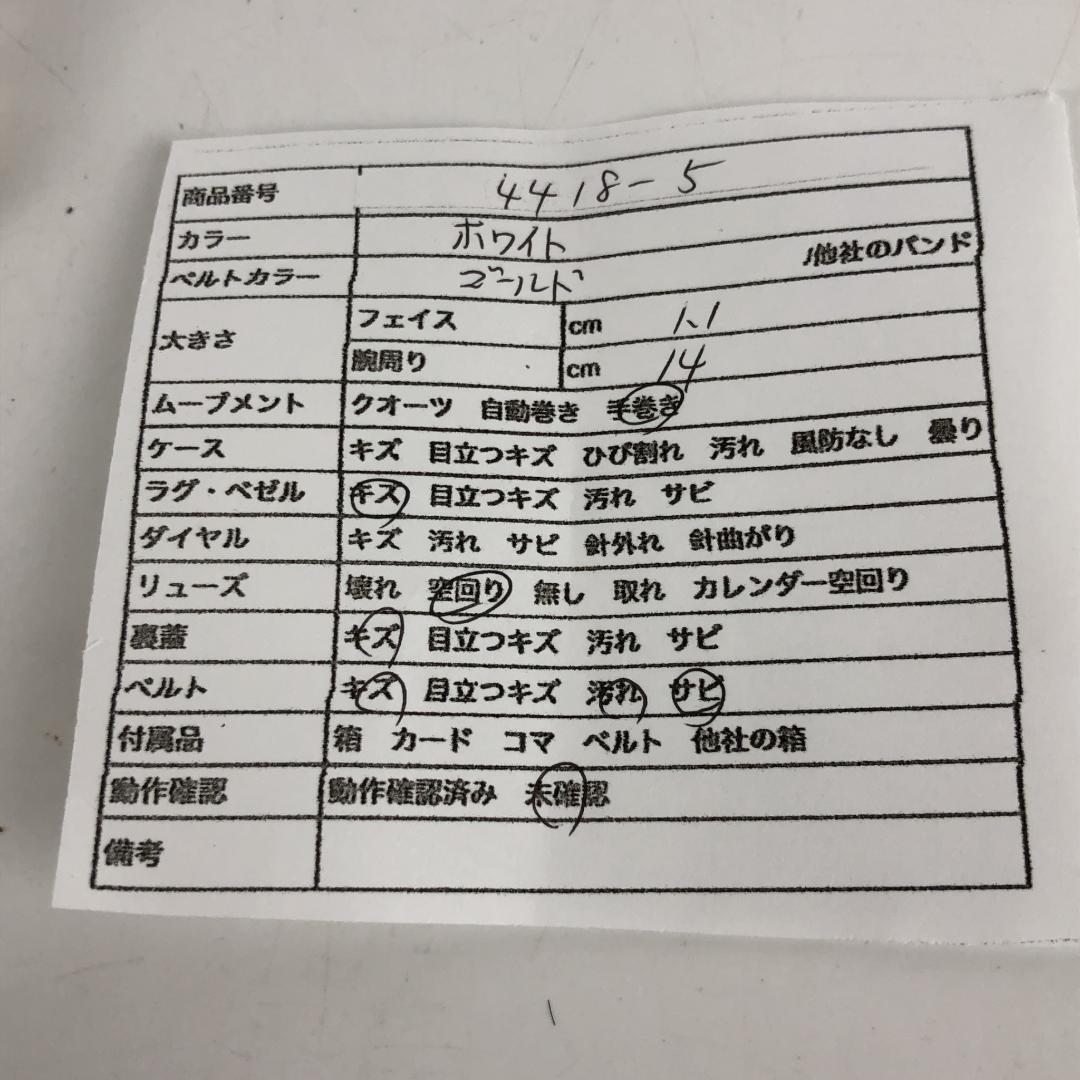 商品番号 4418-5
カラー ホワイト
ベルトカラー ゴールド /他社のバンド
大きさ フェイス cm 1.1
腕周り cm 14
ムーブメント クオーツ 自動巻き 手巻き
ケース キズ 目立つキズ ひび割れ 汚れ 風防なし 曇り
ラグ・ベゼル キズ 目立つキズ 汚れ サビ
ダイヤル キズ 汚れ サビ 針外れ 針曲がり
リューズ 壊れ 空回り 無し 取れ カレンダー空回り
裏蓋 キズ 目立つキズ 汚れ サビ
ベルト キズ 目立つキズ 汚れ サビ
付属品 箱 カード コマ ベルト 他社の箱
動作確認 動作確認済み 未確認
備考